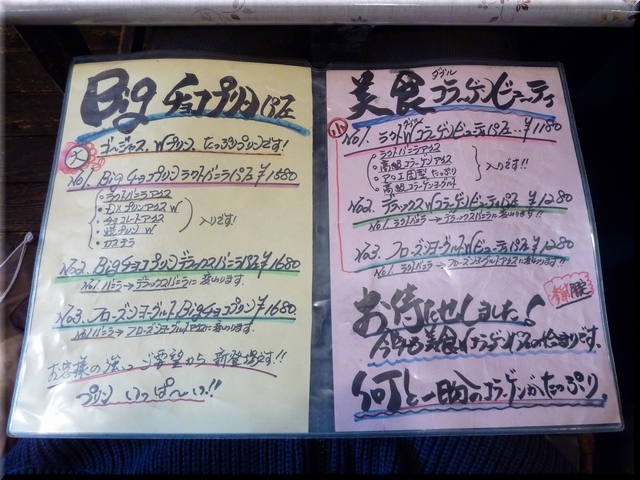 Big チョコプリンパフェ
ゴージャス、Wプリン、たっぷりプリンです!
大
No1. Bigチョコプリンラクトバニラパフェ ¥1580
・ラクトバニラアイス
・DXプリンアイス W
・チョコレートアイス
・焼プリン W
・カステラ
入りです!
No2. Bigチョコプリンデラックスバニラパフェ ¥1680
No.1 バニラ→デラックスバニラに変わります。
No3. フローズンヨーグルトBigチョコプリン ¥1680
No1バニラ→フローズンヨーグルトアイスに変わります。
お客様の強いご要望から新登場です!!
プリンいっぱ〜い!!
美食 ダブル コラーゲンビューティ
小
No1. ラクトWコラーゲンビューティパフェ… ¥1180
・ラクトバニラアイス
・高級コラーゲンアイス
・たっぷり
・高級コラーゲンヨーグルト
入りです!!
No2. デラックスWビューティパフェ ¥1280
No.1 ラクトバニラ→デラックスバニラに変わります!!
No3. フローズンヨーグルトWビューティパフェ ¥1280
No.1 ラクトバニラ→フローズンヨーグルトアイスに変わります!!
お待たせしました!
今年も美食Wコラーゲン始まりです。
と一日分のコラーゲンがたっぷり。